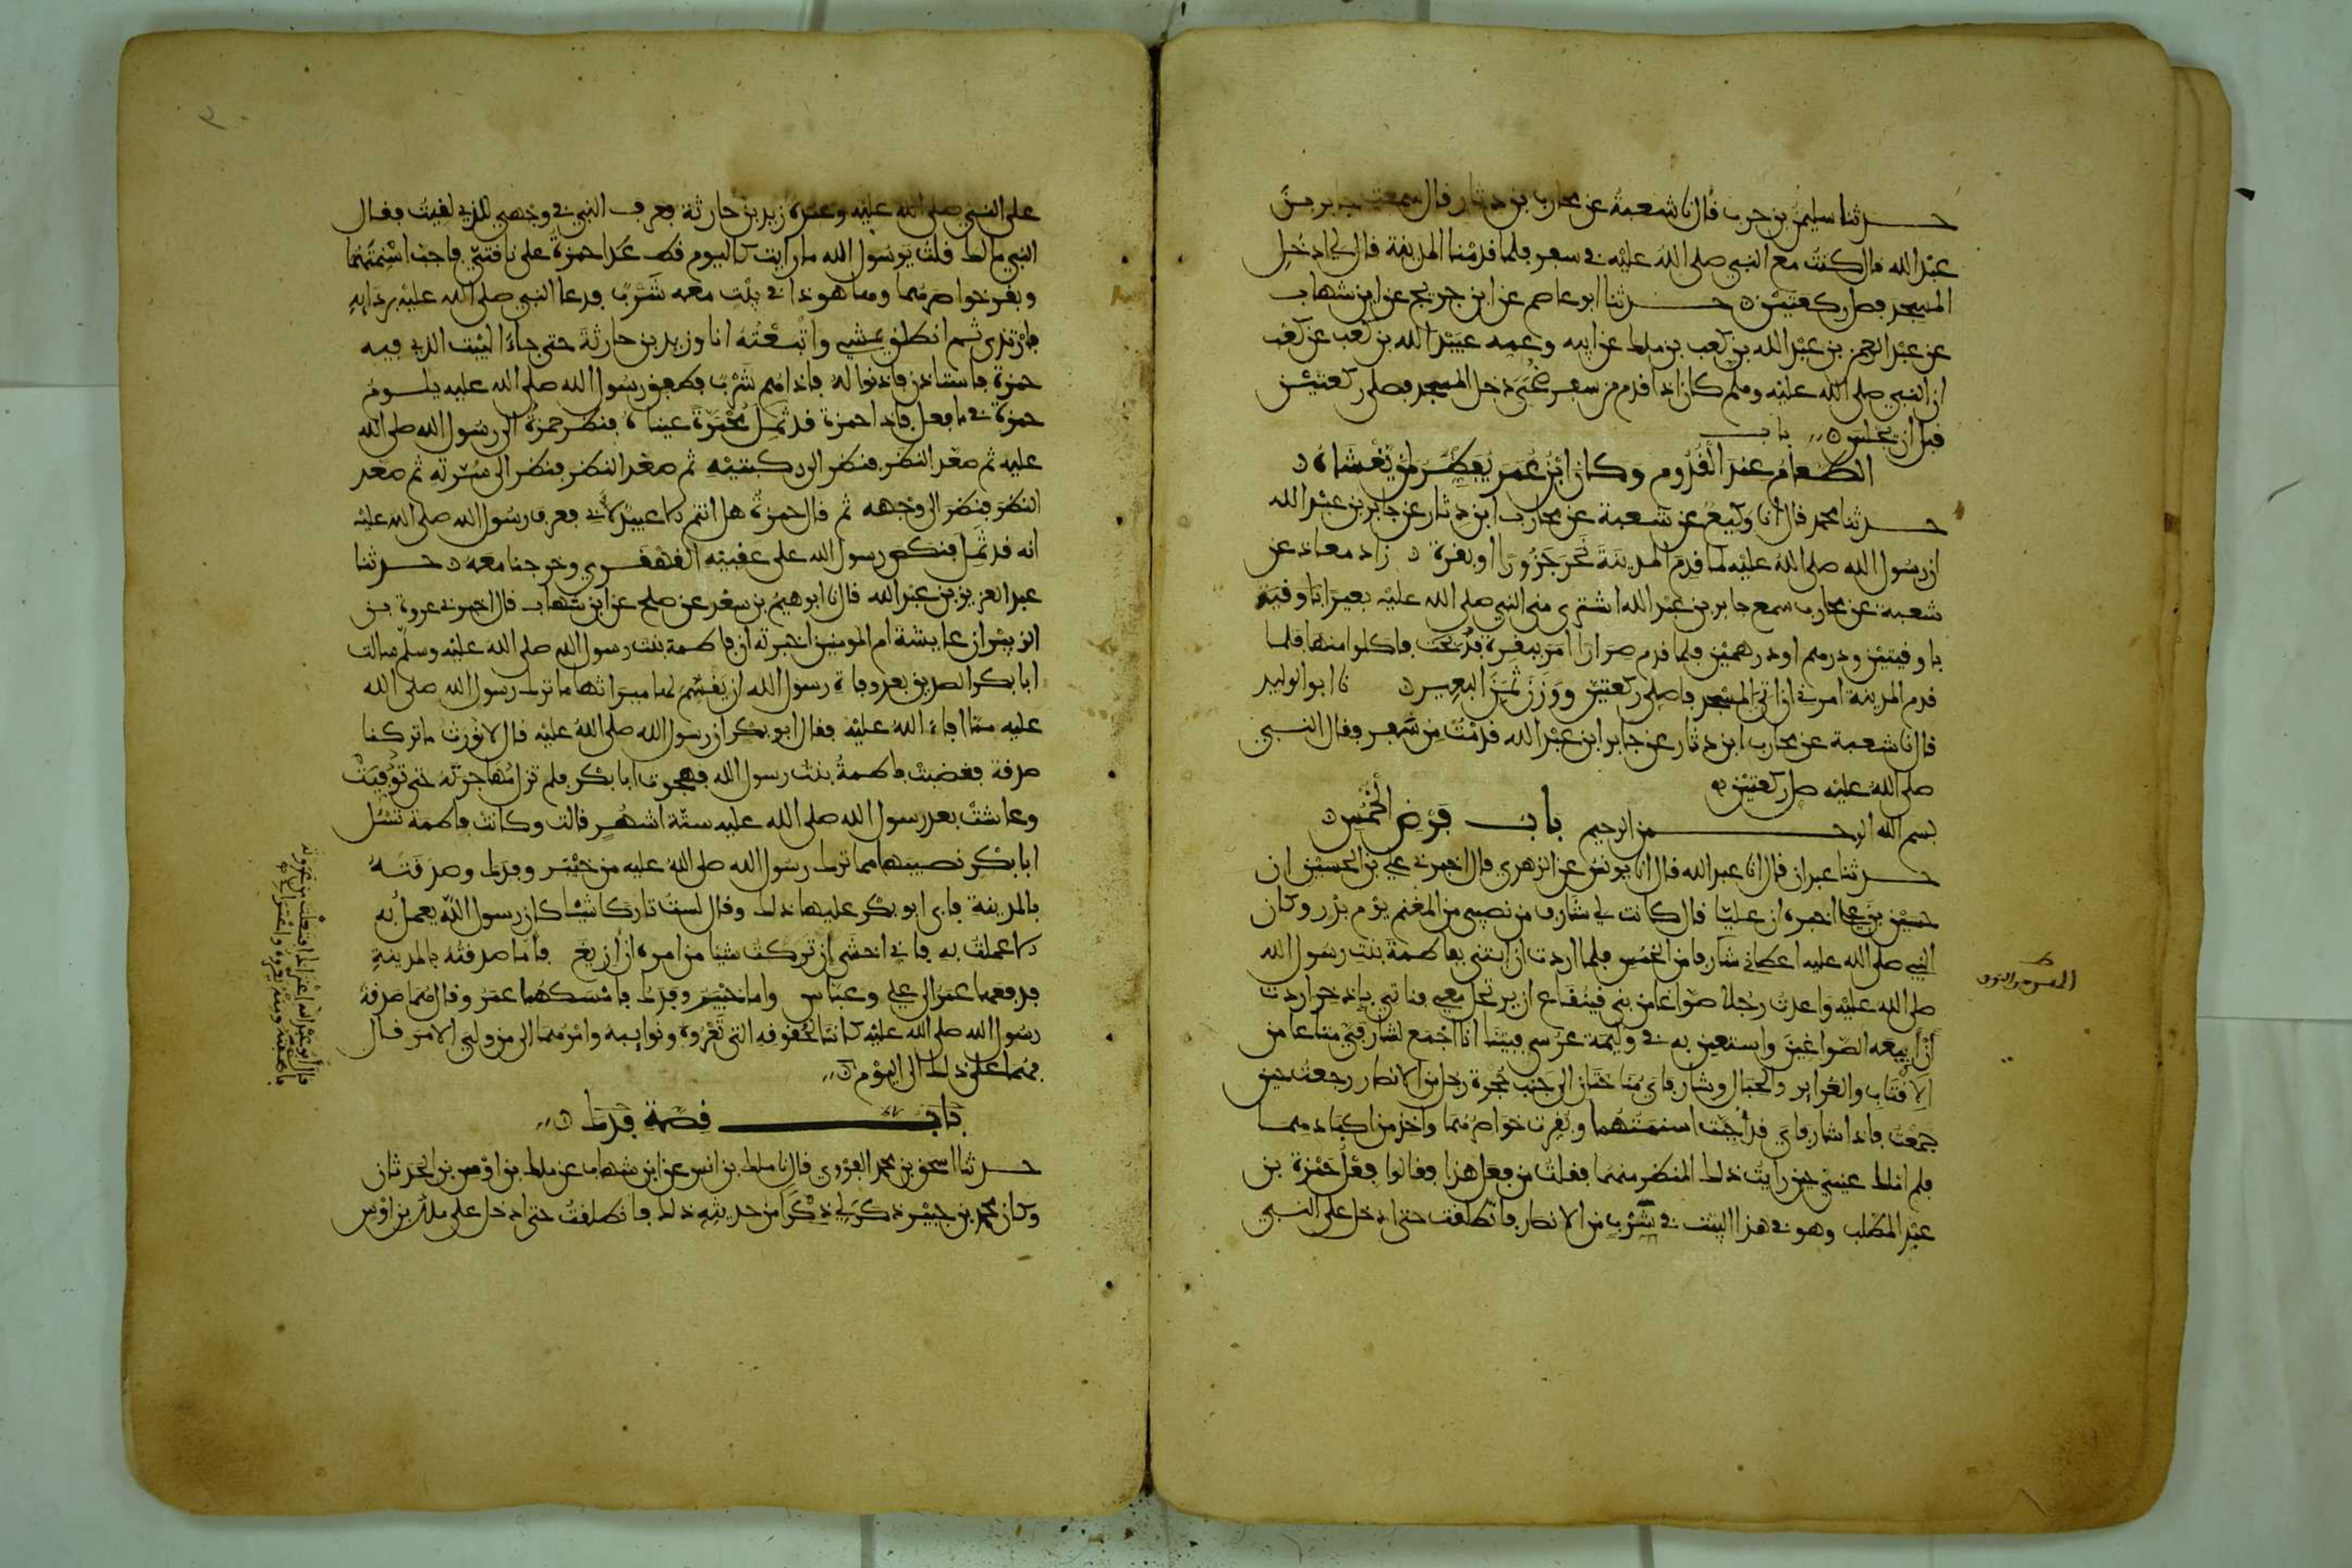 حدثنا سليمن بن حرب قال نا شعبة عن محارب بن دثار قال سمعت جابر بن
عبد الله قال كنت مع النبي صلى الله عليه في سفر فلما قدمنا المدينة قال لي ادخل
المسجد فصل ركعتين حدثنا ابو عاصم عن ابن جريج عن ابن شهاب
عن عبد الرحمن بن عبد الله بن كعب بن ملك عن ابيه وعمه عبيد الله بن كعب عن كعب
ان النبي صلى الله عليه وسلم كان اذا قدم من سفر ضحى دخل المسجد فصلى ركعتين
قبل ان يجلس باب
الطعام عند القدوم وكان ابن عمر يفطر لمن يغشاه
حدثنا محمد قال انا وكيع عن شعبة عن محارب ابن دثار عن جابر بن عبد الله
ان رسول الله صلى الله عليه لما قدم المدينة نحر جزورا او بقرة زاد معاذ عن
شعبة عن محارب سمع جابر بن عبد الله اشترى مني النبي صلى الله عليه بعيرا باوقية
باوقيتين ودرهم او درهمين فلما قدم صرارا امر ببقرة فذبحت فاكلوا منها فلما
قدم المدينة امرني ان اتي المسجد فاصلي ركعتين ووزن ثمن البعير نا ابو الوليد
قال نا شعبة عن محارب ابن دثار عن جابر ابن عبد الله قدمت من سفر فقال النبي
صلى الله عليه صل ركعتين
بسم الله الرحمن الرحيم باب فرض الخمس
حدثنا عبدان قال انا عبد الله قال انا يونس عن الزهري قال اخبرني علي بن الحسين ان
حسين بن علي اخبره ان عليا قال كانت لي شارف من نصيبي من المغنم يوم بدر وكان
النبي صلى الله عليه اعطاني شارفا من الخمس فلما اردت ان ابتني بفاطمة بنت رسول الله
صلى الله عليه واعدت رجلا صواغا من بني قينقاع ان يرتحل معي فناتي باذخر اردت
ان ابيعه الصواغين واستعين به في وليمة عرسي فبينا انا اجمع لشارفي متاعا من
الاقتاب والغراير والحبال وشارفاي مناختان الى جنب حجرة رجل من الانصار رجعت حين
جمعت ما جمعت فاذا شارفاي قد اجبت اسنمتهما وبقرت خواصرهما واخذ من اكبادهما
فلم املك عيني حين رايت ذلك المنظر منهما فقلت من فعل هذا فقالوا فعل حمزة بن
عبد المطلب وهو في هذا البيت في شرب من الانصار فانطلقت حتى ادخل على النبي
على النبي صلى الله عليه وعنده زيد بن حارثة فعرف النبي في وجهي الذي لقيت فقال
النبي مالك قلت يرسول الله ما رايت كاليوم قط عدا حمزة على ناقتي فاجب اسنمتهما
وبقر خواصرهما وها هو ذا في بيت معه شرب فدعا النبي صلى الله عليه بردايه
فارتدى ثم انطلق يمشي واتبعته انا وزيد بن حارثة حتى جاء البيت الذي فيه
حمزة فاستاذن فاذنوا له فاذا هم شرب فطفق رسول الله صلى الله عليه يلوم
حمزة في ما فعل فاذا حمزة قد ثمل محمرة عيناه فنظر حمزة الى رسول الله صلى الله
عليه ثم صعد النظر فنظر الى ركبتيه ثم صعد النظر فنظر الى سرته ثم صعد
النظر فنظر الى وجهه ثم قال حمزة هل انتم الا عبيد لابي فعرف رسول الله صلى الله عليه
انه قد ثمل فنكص رسول الله على عقبيه القهقرى وخرجنا معه حدثنا
عبد العزيز بن عبد الله قال نا ابرهيم بن سعد عن صلح عن ابن شهاب قال اخبرني عروة بن
الزبير ان عايشة ام المومنين اخبرته ان فاطمة بنت رسول الله صلى الله عليه وسلم سالت
ابا بكر الصديق بعد وفاة رسول الله ان يقسم لها ميراثها ما ترك رسول الله صلى الله
عليه مما افاء الله عليه فقال ابو بكر ان رسول الله صلى الله عليه قال لا نورث ما تركنا
صدقة فغضبت فاطمة بنت رسول الله فهجرت ابا بكر فلم تزل مهاجرته حتى توفيت
وعاشت بعد رسول الله صلى الله عليه ستة اشهر قالت وكانت فاطمة تسل
ابا بكر نصيبها مما ترك رسول الله صلى الله عليه من خيبر وفدك وصدقته
بالمدينة فابى ابو بكر عليها ذلك وقال لست تاركا شيئا كان رسول الله يعمل به
الا عملت به فاني اخشى ان تركت شيئا من امره ان ازيغ فاما صدقته بالمدينة
فدفعها عمر الى علي وعباس واما خيبر وفدك فامسكها عمر وقال هما صدقة
رسول الله صلى الله عليه كانتا لحقوقه التي تعروه ونوايبه وامرهما الى من ولي الامر قال
فهما على ذلك الى اليوم
باب قصة فدك
حدثنا اسحق بن محمد الفروي قال نا ملك بن انس عن ابن شهاب عن ملك بن اوس بن الحدثان
وكان محمد بن جبير ذكر لي ذكرا من حديثه ذلك فانطلقت حتى ادخل على ملك بن اوس
قال ابو عبد الله اعتراك افتعلت من عروته
فاصبته ومنه يعروه واعتراني